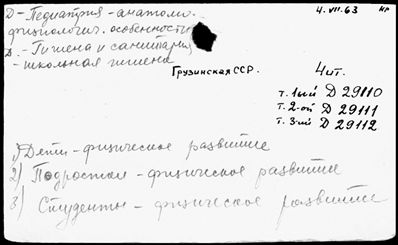 Д-Педиатрия-анатомо.
физиологич. особенности
Д.-Гигиена и санитария
-школьная гигиена
4.VII.63 нр
Грузинская ССР.
Чит.
т.1ый Д 29110
т.2-ой Д 29111
т.3-ий Д 29112
1) Дети-физическое развитие
2) Подростки-физическое развитие
3) Студенты-физическое развитие